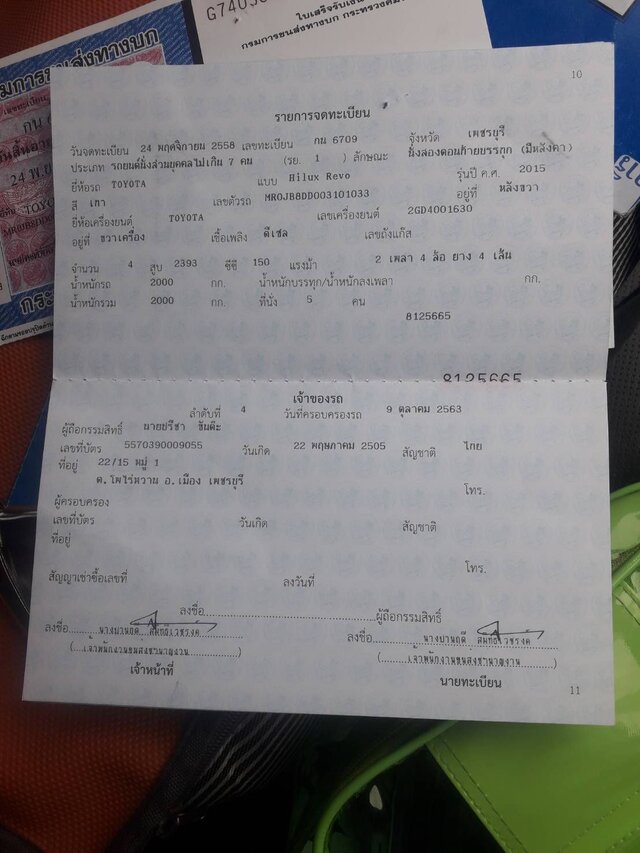 G740
ใบเสร็จรับเงิน
กรมการขนส่งทางบก กระทรวงคมนาคม
กรมการขนส่งทางบก
10
รายการจดทะเบียน
วันจดทะเบียน 24 พฤศจิกายน 2558 เลขทะเบียน กน 6709 จังหวัด เพชรบุรี
ประเภท รถยนต์นั่งส่วนบุคคลไม่เกิน 7 คน (รย. 1 ) ลักษณะ นั่งสองตอนท้ายบรรทุก (มีหลังคา)
ยี่ห้อรถ TOYOTA แบบ Hilux Revo รุ่นปี ค.ศ. 2015
สี เทา เลขตัวรถ MR0JB8DD003101033 อยู่ที่ หลังขวา
ยี่ห้อเครื่องยนต์ TOYOTA เลขเครื่องยนต์ 2GD4001630
อยู่ที่ ขวาเครื่อง เชื้อเพลิง ดีเซล เลขถังแก๊ส
จำนวน 4 สูบ 2393 ซีซี 150 แรงม้า 2 เพลา 4 ล้อ ยาง 4 เส้น
น้ำหนักรถ 2000 กก. น้ำหนักบรรทุก/น้ำหนักลงเพลา กก.
น้ำหนักรวม 2000 กก. ที่นั่ง 5 คน
8125665
8125665
เจ้าของรถ
ลำดับที่ 4 วันที่ครอบครองรถ 9 ตุลาคม 2563
ผู้ถือกรรมสิทธิ์ นายปรีชา
เลขที่บัตร 5570390009055 วันเกิด 22 พฤษภาคม 2505 สัญชาติ ไทย
ที่อยู่ 22/15 หมู่ 1
ต.โพไร่หวาน อ.เมือง เพชรบุรี โทร.
ผู้ครอบครอง
เลขที่บัตร วันเกิด สัญชาติ
ที่อยู่
โทร.
สัญญาเช่าซื้อเลขที่ ลงวันที่
ลงชื่อ ผู้ถือกรรมสิทธิ์
ลงชื่อ ลงชื่อ
(เจ้าพนักงานขนส่งชำนาญงาน) (เจ้าพนักงานขนส่งชำนาญงาน)
เจ้าหน้าที่ นายทะเบียน
11